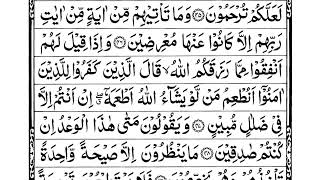 لَعَلَّكُمْ تُرْحَمُوْنَ ﴿۴۵﴾ وَمَا تَاْتِيْهِمْ مِّنْ اٰيَةٍ مِّنْ اٰيٰتِ
رَبِّهِمْ اِلَّا كَانُوْا عَنْهَا مُعْرِضِيْنَ ﴿۴۶﴾ وَاِذَا قِيْلَ لَهُمْ
اَنْفِقُوْا مِمَّا رَزَقَكُمُ اللّٰهُ ۙ قَالَ الَّذِيْنَ كَفَرُوْا لِلَّذِيْنَ
اٰمَنُوْٓا اَنُطْعِمُ مَنْ لَّوْ يَشَآءُ اللّٰهُ اَطْعَمَهٗٓ ۖ اِنْ اَنْتُمْ اِلَّا
فِيْ ضَلٰلٍ مُّبِيْنٍ ﴿۴۷﴾ وَيَقُوْلُوْنَ مَتٰى هٰذَا الْوَعْدُ اِنْ
كُنْتُمْ صٰدِقِيْنَ ﴿۴۸﴾ مَا يَنْظُرُوْنَ اِلَّا صَيْحَةً وَّاحِدَةً